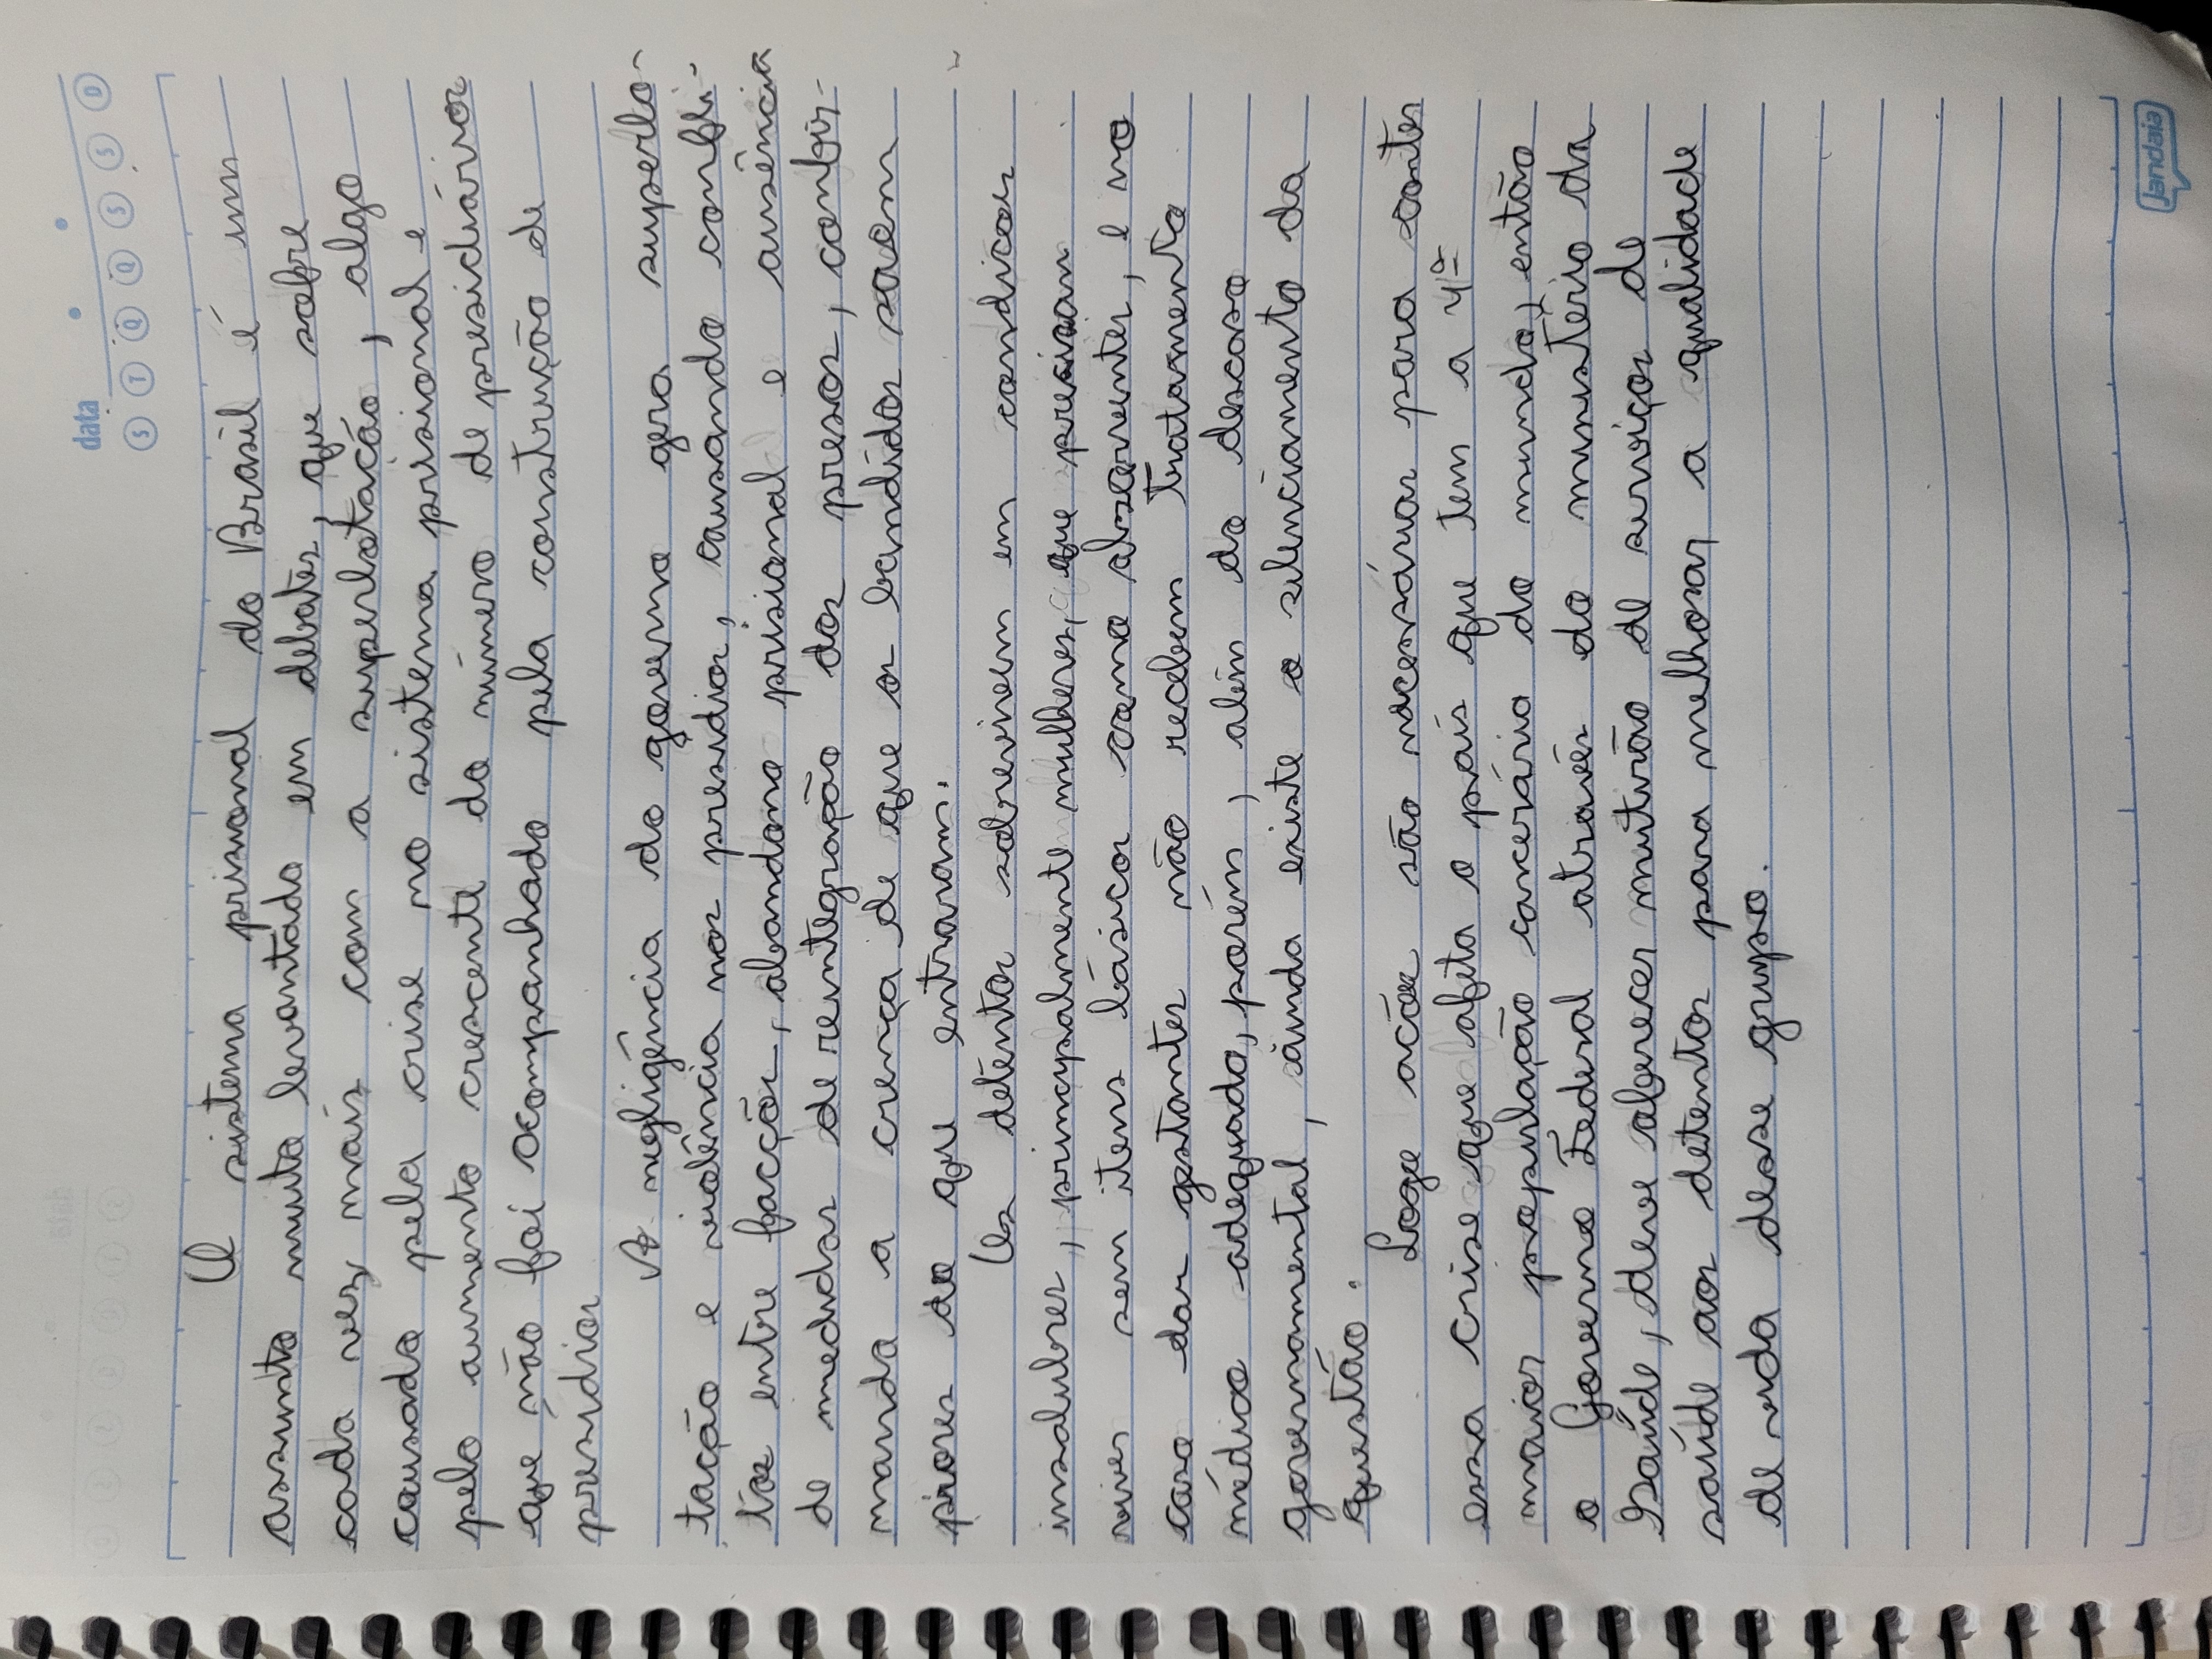 data
S T Q Q S S D
O sistema prisional do Brasil é um
assunto muito levantado em debates, que sofre
cada vez mais com a superlotacão, algo
causado pela crise no sistema prisional e
pelo aumento crescente do número de presidiários
que não foi acompanhado pela construção de
presídios
A negligência do governo gera superlo-
tação e violência nos presídios, causando confli-
tos entre facções, abandono prisional e ausência
de medidas de reintegração dos presos, confir-
mando a crença de que os bandidos saem
piores do que entraram.
Os detentos sobrevivem em condicoes
insalubres, principalmente mulheres, que precisam
viver sem itens básicos como absorventes, e no
caso das gestantes não recebem tratamento
médico adequado, porém, além do descaso
governamental, ainda existe o silenciamento da
questão.
Logo acões são necessárias para conter
essa crise que afeta o país que tem a 4ª
maior população carcerária do mundo, então
o Governo Federal através do ministério da
Saúde, deve oferecer mutirão de serviços de
saúde aos detentos para melhorar a qualidade
de vida desse grupo.
Jandaia